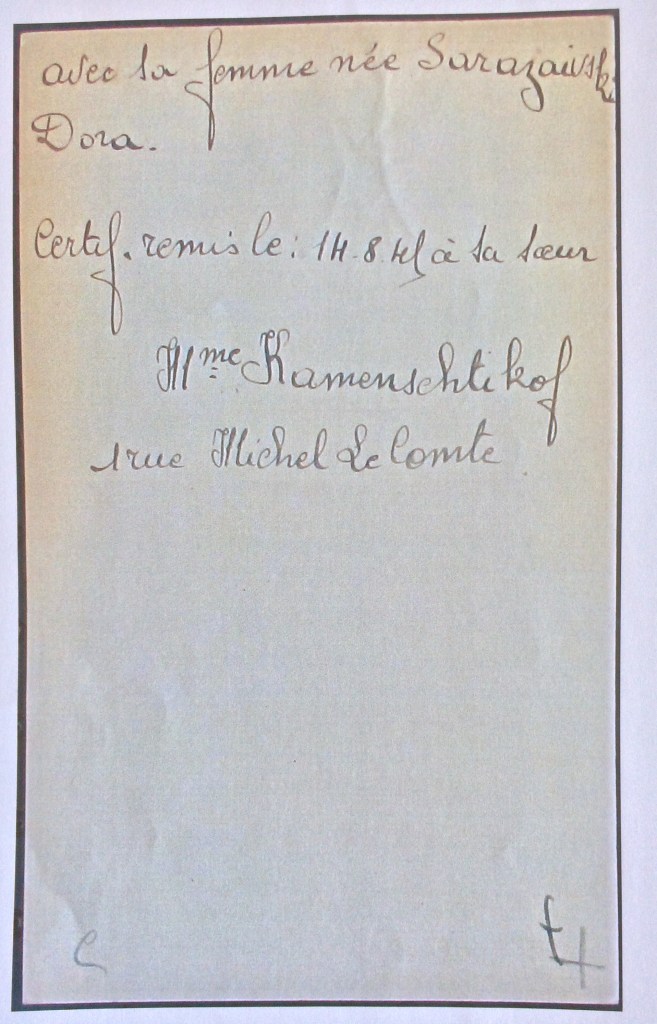 avec sa femme née Sarazaivski
Dora.
Certif. remis le : 14.8.45 à sa sœur
Mme Kamenschtikof
1 rue Michel Le Comte